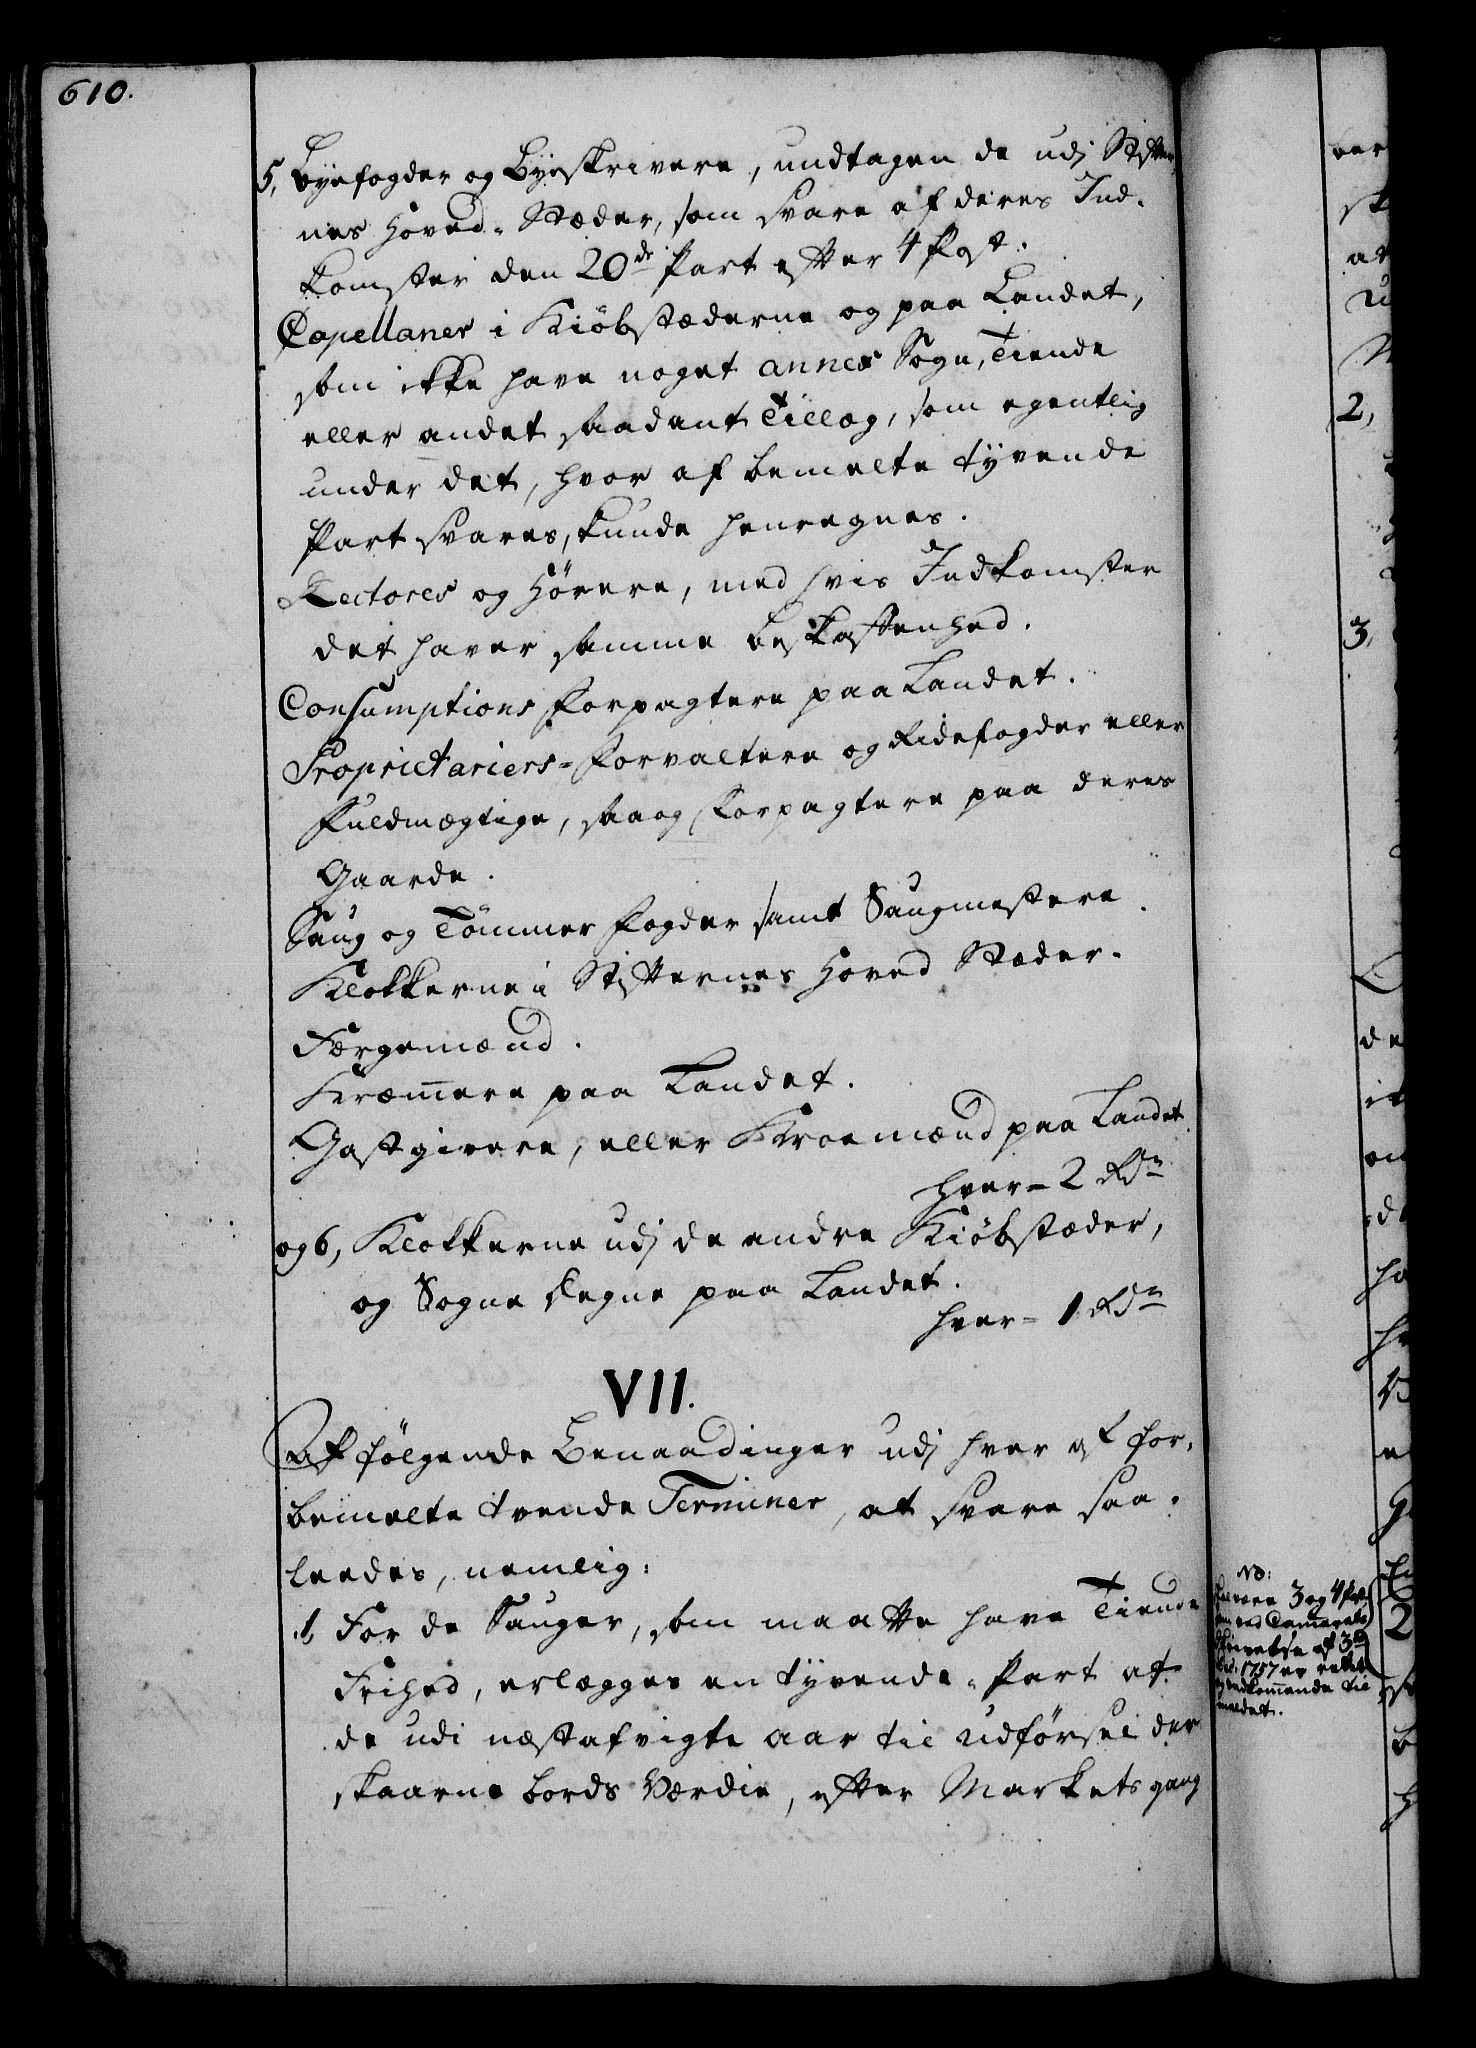 610.
5, Byefogder og Byeskrivere, undtagen de udj Stifter
nes Hoved-Stæder, som svare af deres Ind-
komster den 20de Part efter 4 Post.
Capellaner i Kiöbstæderne og paa Landet,
som ikke have noget annex Sogn, Tiende
eller andet saadant Tillæg, som egentlig
under det, hvor af bemelte tyvende
Part svares, kunde henregnes.
Rectores og Hörere, med hvis Indkomster
det haver samme beskaffenhed.
Consumptions Forpagtere paa Landet.
Proprietariers-Forvaltere og Ridefogder eller
Fuldmægtige, saa og Forpagtere paa deres
Gaarde.
Saug og Tömmer Fogder samt Saugmestere.
Klokkerne i Stifternes Hoved Stæder.
Færgemænd.
Kræm̅ere paa Landet.
Gastgivere, eller Kroemænd paa Landet
hver - 2 Rdr
og 6, Klokkerne udj de andre Kiöbstæder,
og Sogne Degne paa Landet.
hver - 1 Rdr
VII.
Af følgende Benaadinger udj hver af for-
bemelte tvende Terminer, at svare saa-
leedes, nemlig:
1, For de Sauger, som maatte have Tiende
Frihed, erlægges en tyvende-Part af
de udi næstafvigte aar til udførsel der
skaarne bords Værdie, efter Markets gang
NB:
3 og 4
Cammerets
af 3de
1757 er
til
2,
3,
2